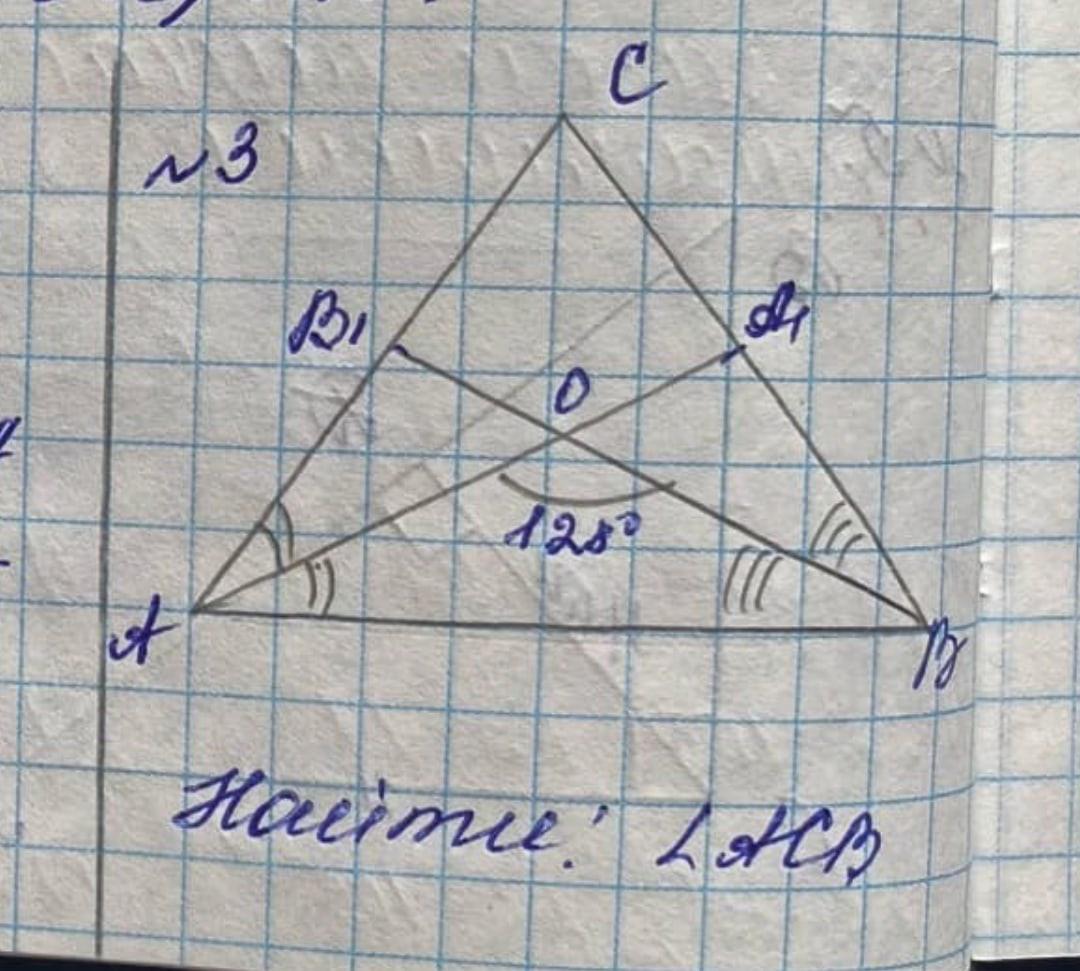 C
№3
B₁
A₁
O
128°
A
B
Найти: ∠ACB